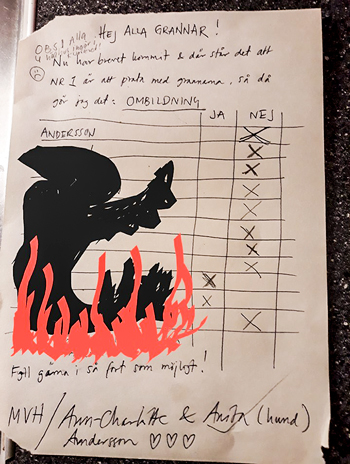 HEJ ALLA GRANNAR!
OBS! Alla
Nu har brevet kommit & där står det att
NR 1 är att prata med grannarna, så då
gör jag det: OMBILDNING
JA NEJ
ANDERSSON
Fyll gärna i så fort som möjligt!
MVH/Ann-Charlotte & Anita (hund)
Andersson ♡♡♡